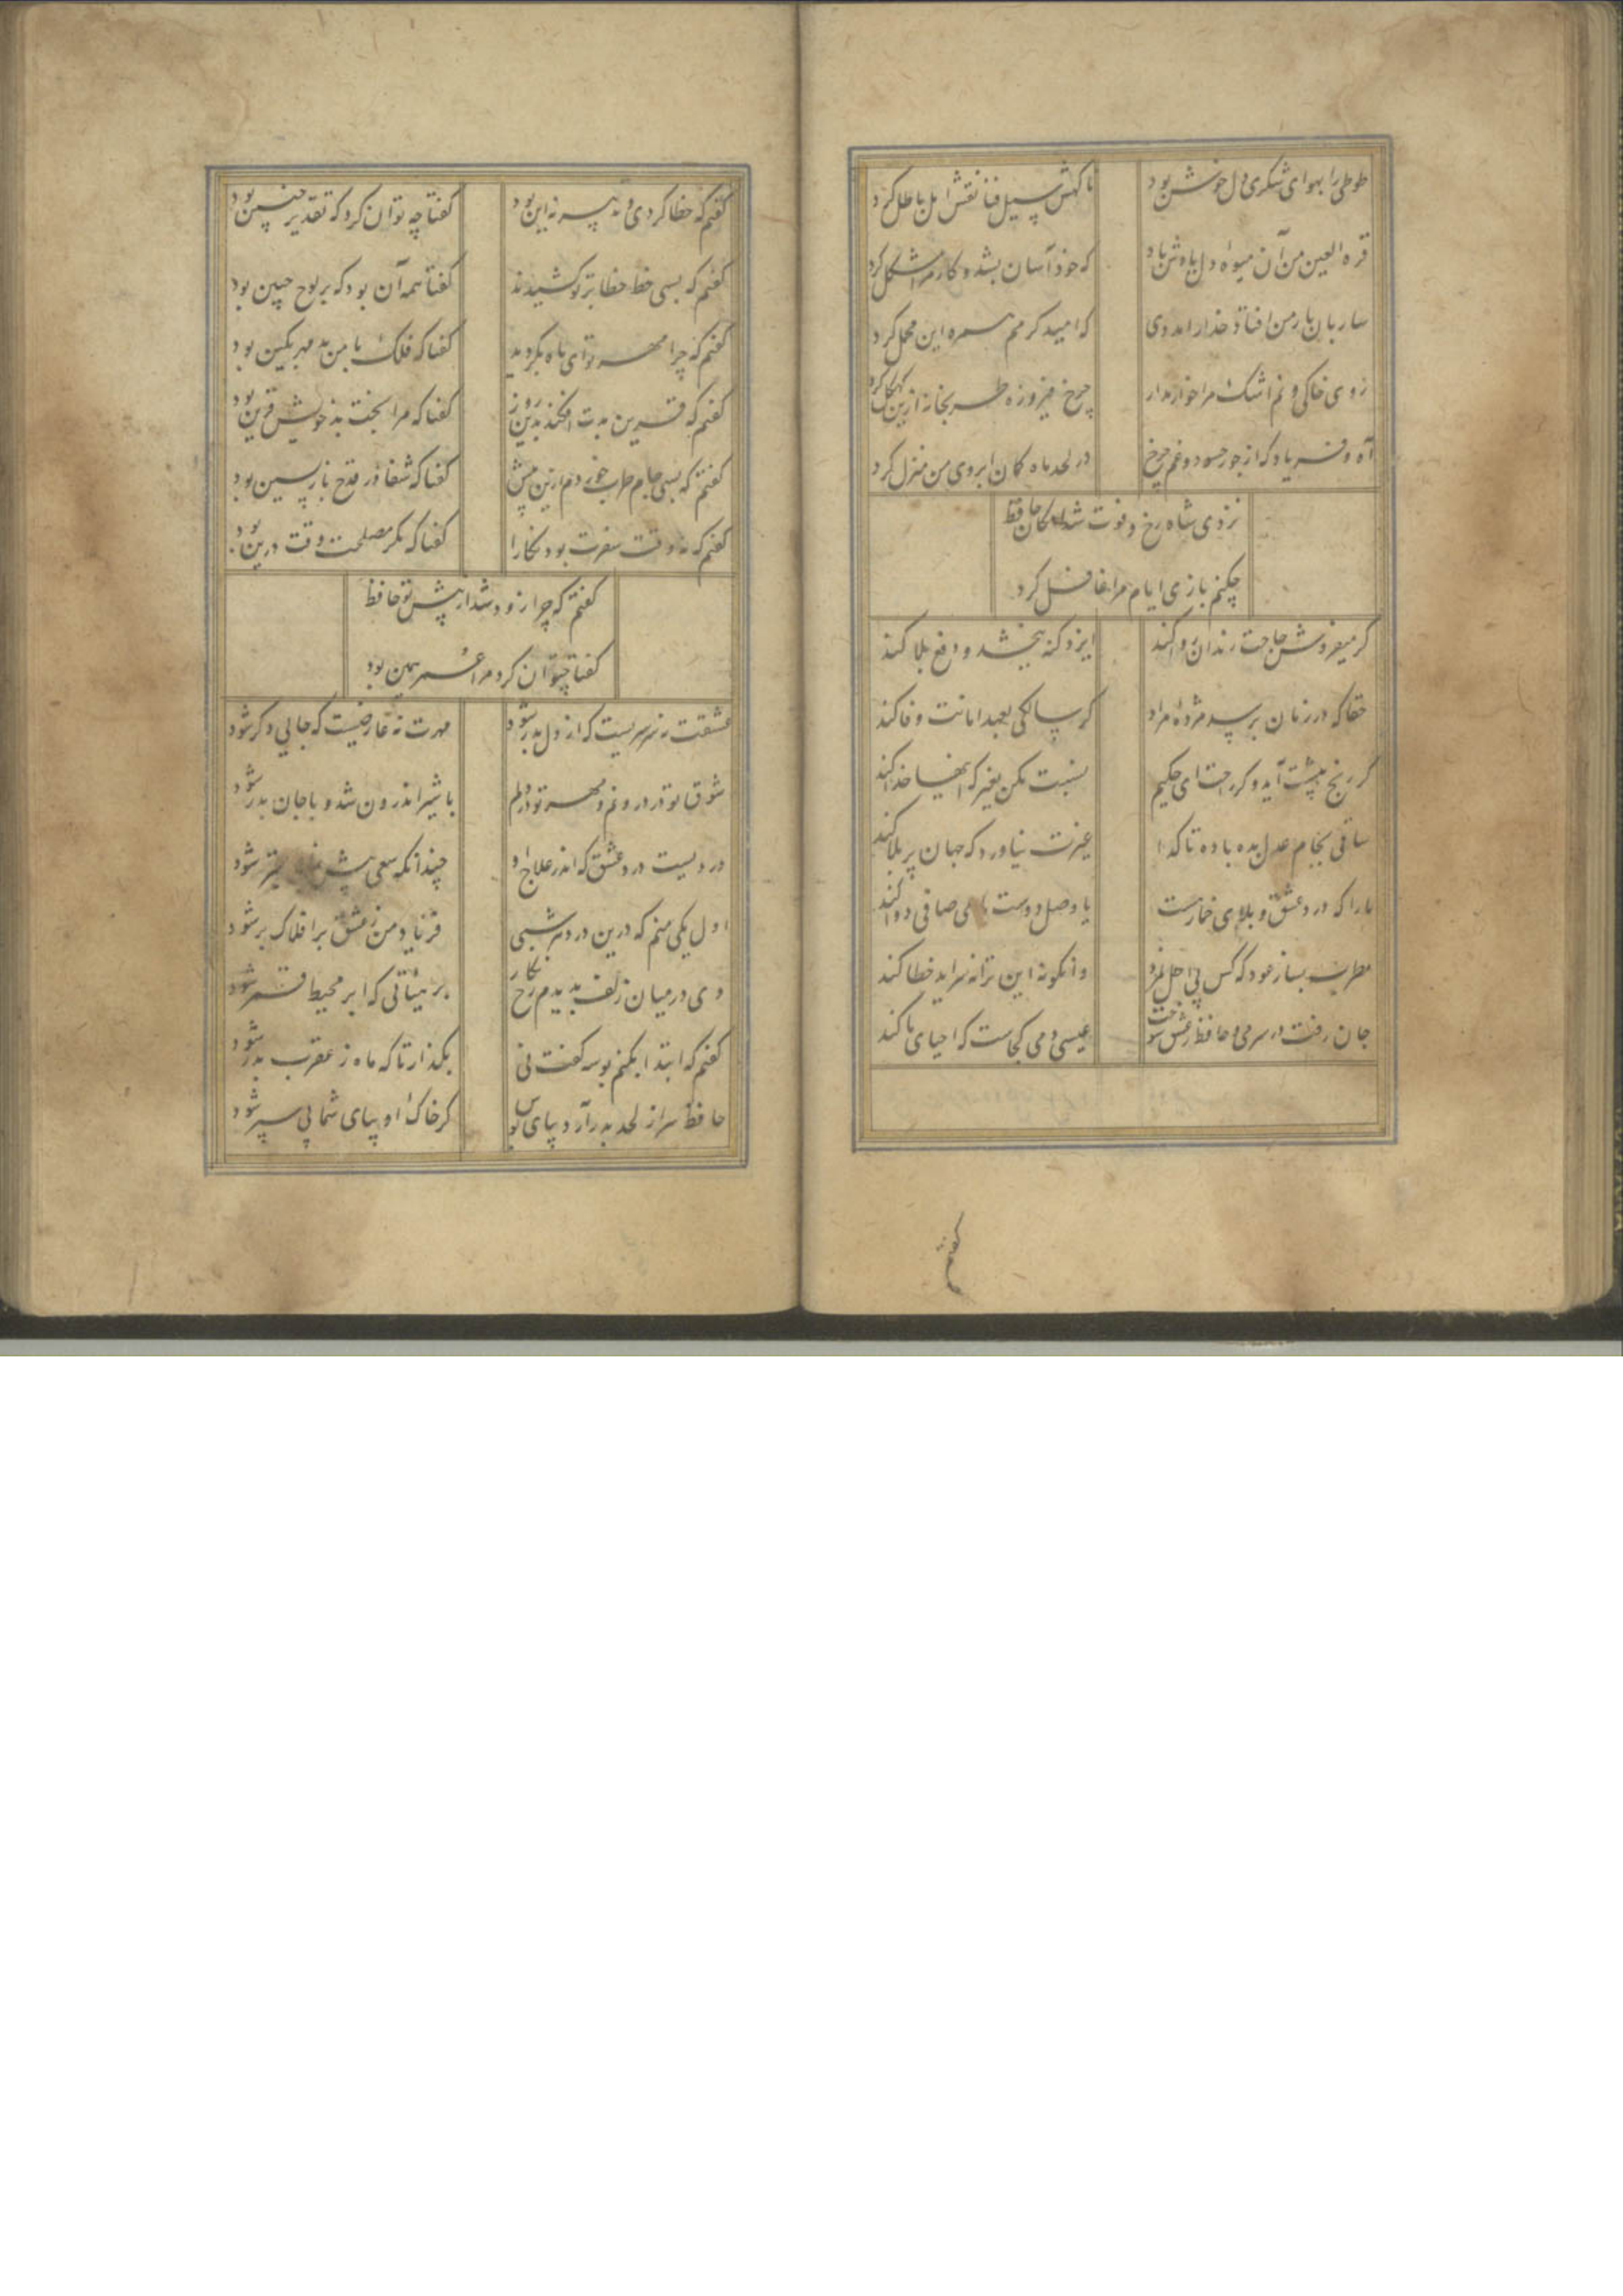 طوطی را بهوای شکری دل خوش بود
ناکهش سیل فنا نقش امل باطل کرد
قره العین من آن میوهٔ دل یادش باد
که خود آسان بشد و کار مرا مشکل کرد
ساربان بار من افتاد خدا را مددی
که امید کرمم همره این محمل کرد
روی خاکی و نم اشک مرا خوار مدار
چرخ فیروزه طربخانه ازین کهکل کرد
آه و فریاد که از جور حسود و غم چرخ
در لحد ماه کمان ابروی من منزل کرد
نزدی شاه رخ و فوت شد امکان حافظ
چکنم بازی ایام مرا غافل کرد
کر میفروش حاجت رندان روا کند
ایزد کنه ببخشد و دفع بلا کند
حقا که در زمان برسد مژدهٔ مراد
کر سالکی بعهد امانت وفا کند
کر رنج پیشت آید و کر راحت ای حکیم
نسبت مکن بغیر که اینها خدا کند
ساقی بجام عدل بده باده تا کدا
غیرت نیاورد که جهان پر بلا کند
ما را که درد عشق و بلای خمارست
یا وصل دوست یا می صافی دوا کند
مطرب بساز عود که کس بی اجل نمرد
وانکونه این ترانه سراید خطا کند
جان رفت در سر می و حافظ ز عشق سوخت
عیسی دمی کجاست که احیای ما کند
کفتم
کفتم که خطا کردی و تدبیر نه این بود
کفتا چه توان کرد که تقدیر چنین بود
کفتم که بسی خط خطا بر تو کشیدند
کفتا همه آن بود که بر لوح جبین بود
کفتم که چرا مهر تو ای ماه بکردید
کفتا که فلک با من بد مهر بکین بود
کفتم که قرین بدت افکند بدین روز
کفتا که مرا بخت بد خویش قرین بود
کفتم که بسی جام طرب خوردم ازین پیش
کفتا که شفا در قدح بازپسین بود
کفتم که نه وقت سفرت بود نکارا
کفتا که مکر مصلحت وقت درین بود
کفتم که چرا زود شد از پیش تو حافظ
کفتا چتوان کرد مرا عمر همین بود
عشقت نه سرسریست که از دل بدر شود
مهرت نه عارضیست که جایی دکر شود
شوق تو در درونم و مهر تو در دلم
با شیر اندرون شد و با جان بدر شود
دردیست درد عشق که اندر علاج او
چندانکه سعی بیش بتر شود
اول یکی منم که درین درد هر شبی
فریاد من ز عشق بر افلاک بر شود
دی در میان زلف بدیدم رخ نکار
بر هیأتی که ابر محیط قمر شود
کفتم که ابتدا بکنم بوسه کفت نی
بکذار تا که ماه ز عقرب بدر شود
حافظ سر از لحد بدر آرد بپای بوس
کر خاک او بپای شما پی سپر شود